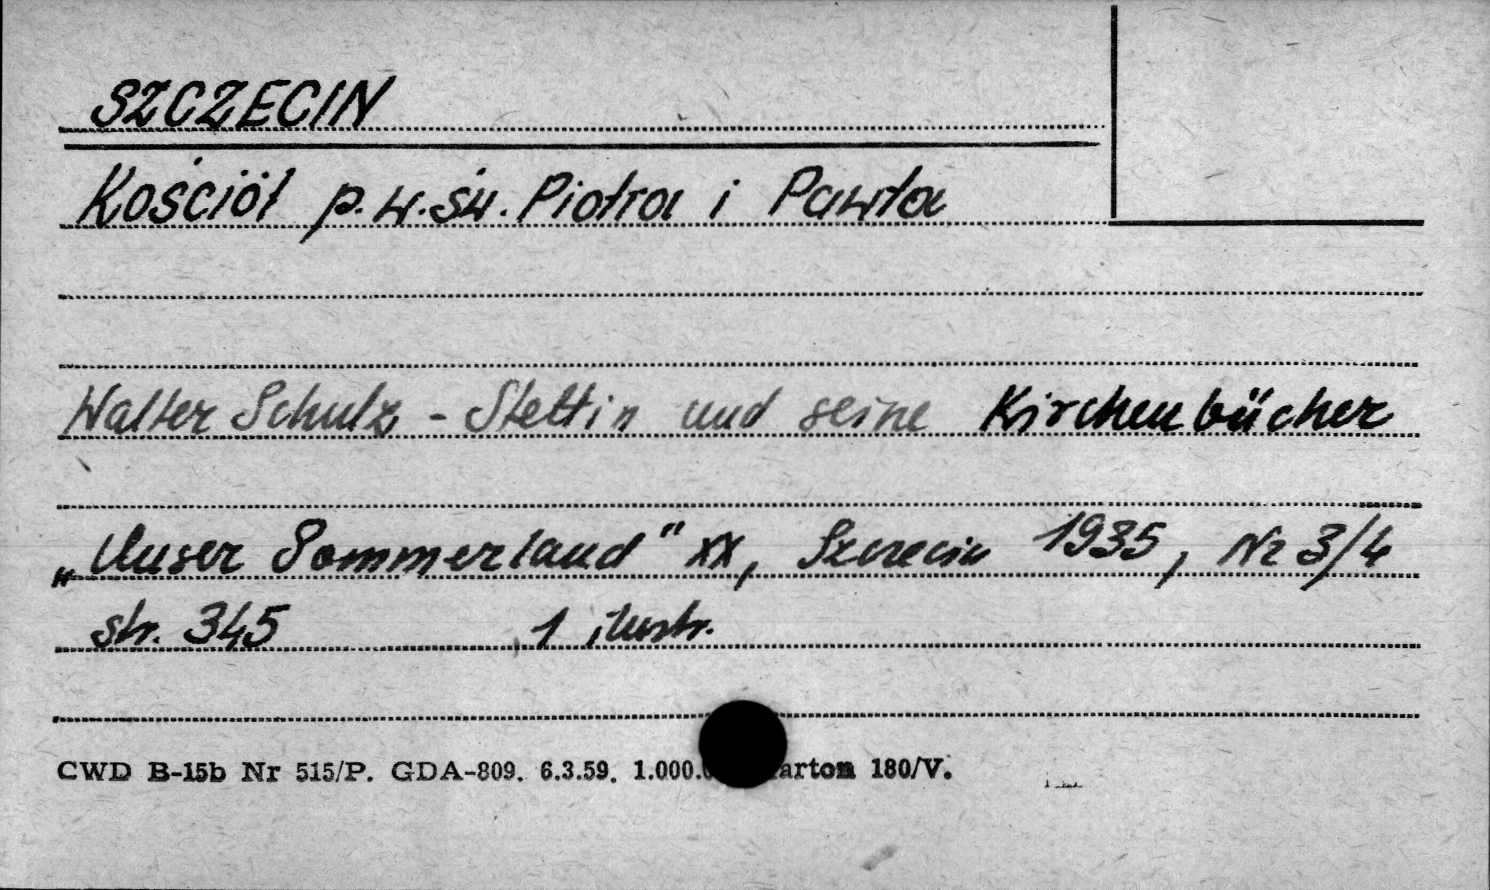 SZCZECIN
Kościół p.w.św. Piotra i Pawła
Walter Schulz - Stettin und seine Kirchenbücher
„Unser Pommerland" XX, Szczecin 1935, Nr 3/4
str. 345 1 ilustr.
CWD B-15b Nr 515/P. GDA-809. 6.3.59. 1.000. arton 180/V.